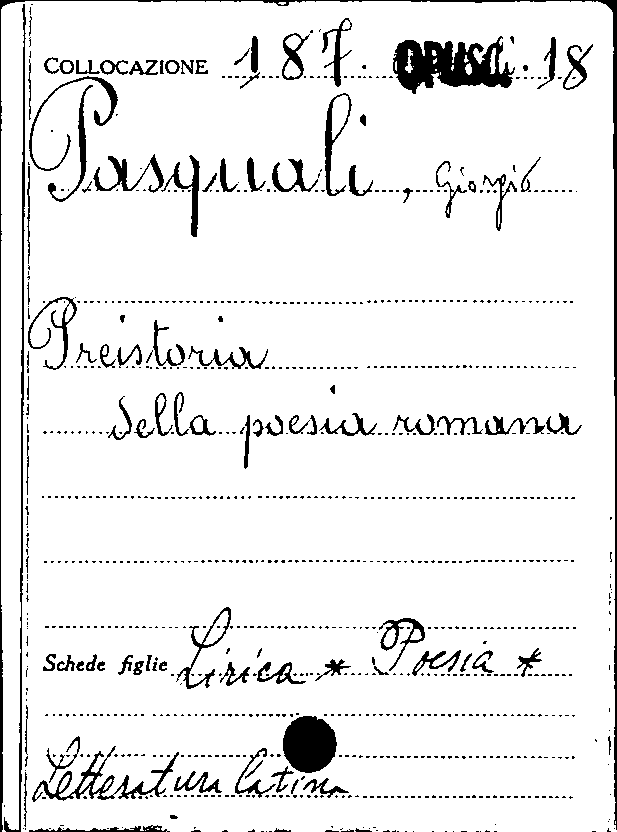 COLLOCAZIONE 187. OPUSC. 18
Pasquali, Giorgio
Preistoria
della poesia romana
Schede figlie Lirica * Poesia *
Letteratura latina